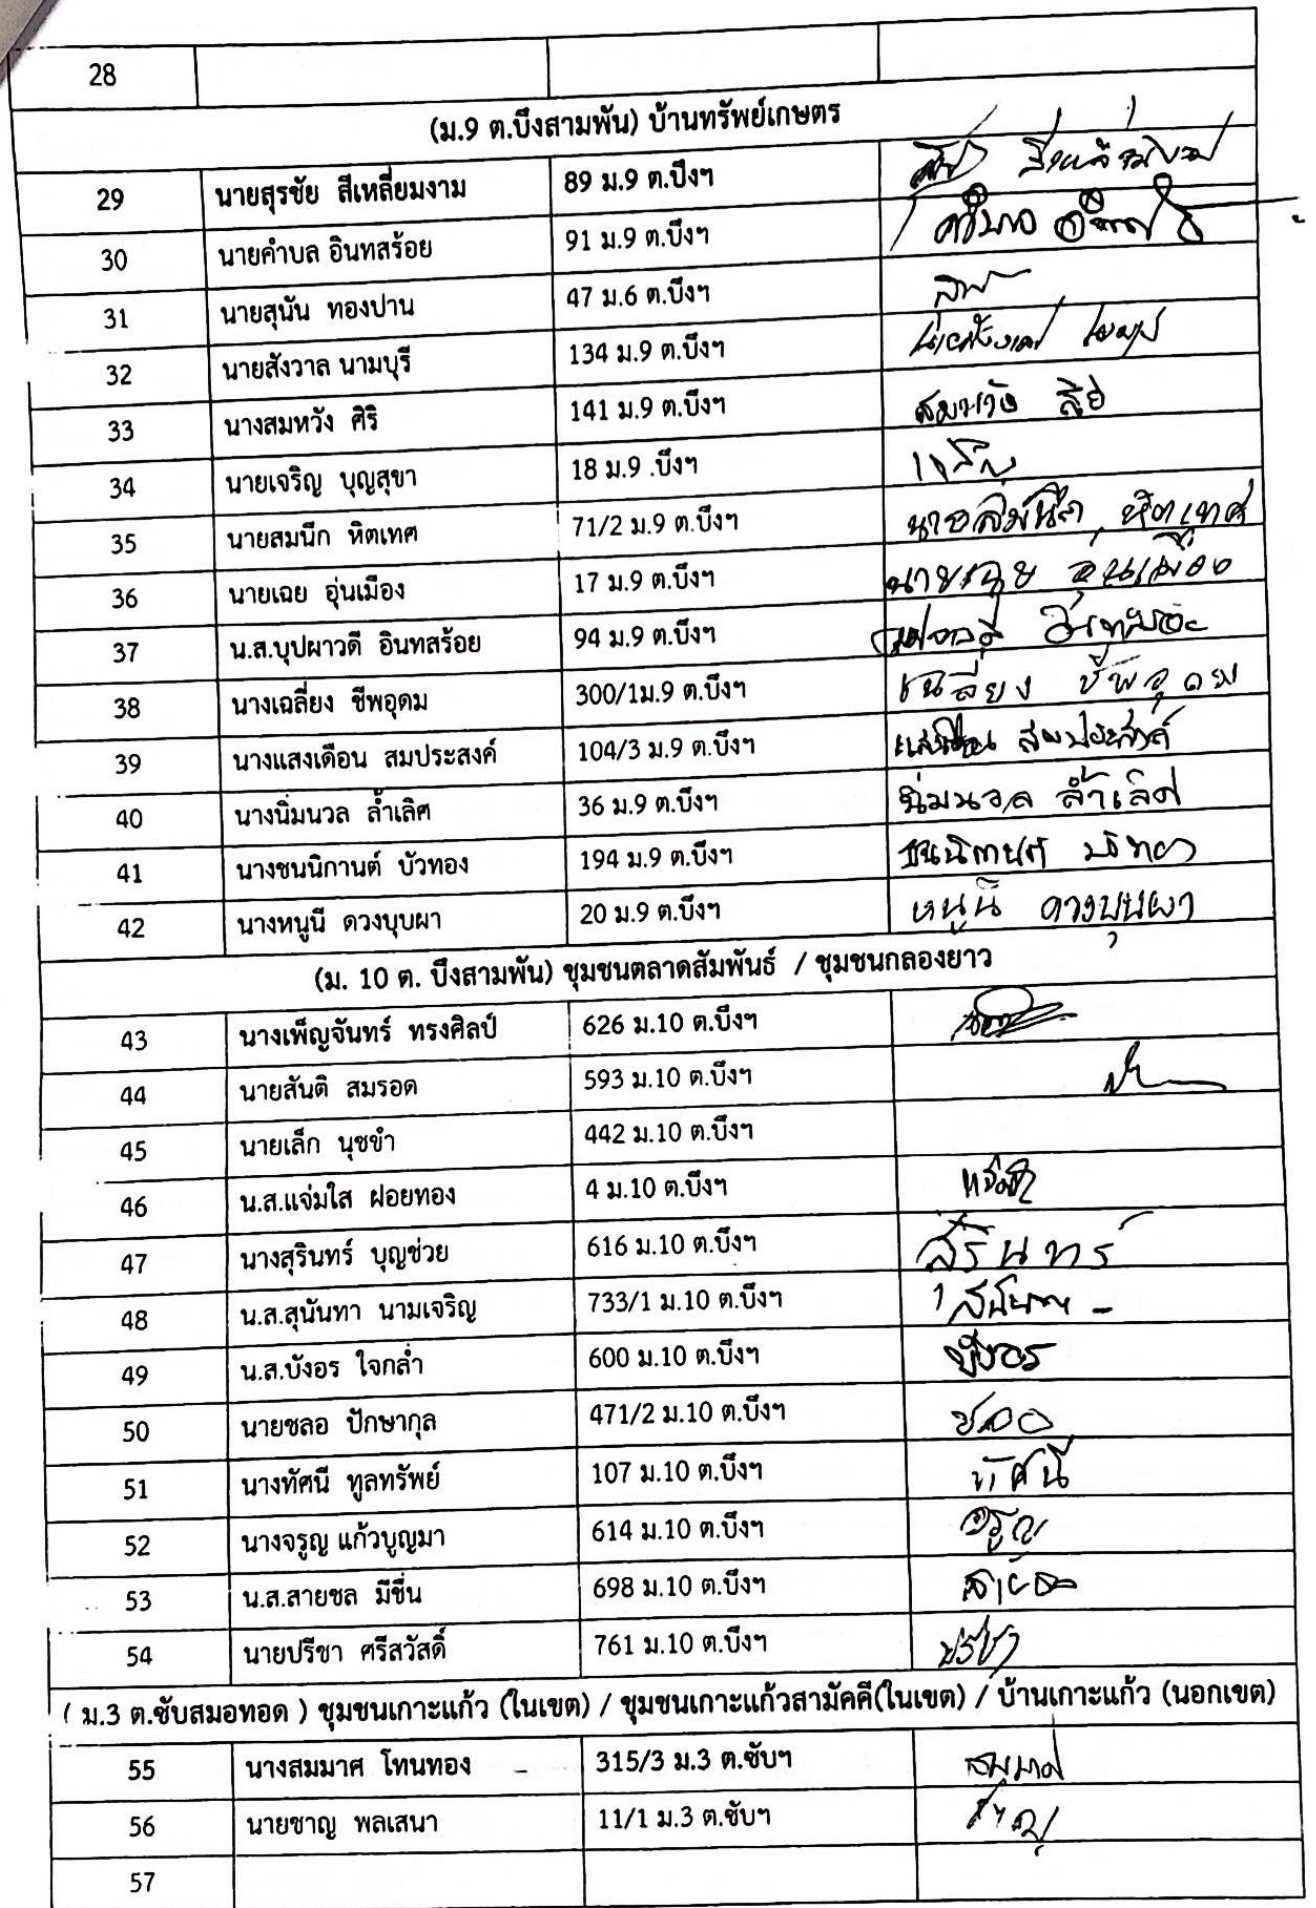 28
(ม.9 ต.บึงสามพัน) บ้านทรัพย์เกษตร
29 นายสุรชัย สีเหลี่ยมงาม 89 ม.9 ต.บึงฯ
30 นายคำบล อินทสร้อย 91 ม.9 ต.บึงฯ
31 นายสุนัน ทองปาน 47 ม.6 ต.บึงฯ
32 นายสังวาล นามบุรี 134 ม.9 ต.บึงฯ
33 นางสมหวัง ศิริ 141 ม.9 ต.บึงฯ สมหวัง
34 นายเจริญ บุญสุขา 18 ม.9 .บึงฯ เจริญ
35 นายสมนึก หิตเทศ 71/2 ม.9 ต.บึงฯ นายสมนึก หิตเทศ
36 นายเฉย อุ่นเมือง 17 ม.9 ต.บึงฯ นายเฉย อุ่นเมือง
37 น.ส.บุปผาวดี อินทสร้อย 94 ม.9 ต.บึงฯ
38 นางเฉลี่ยง ชีพอุดม 300/1ม.9 ต.บึงฯ เฉลี่ยง ชีพอุดม
39 นางแสงเดือน สมประสงค์ 104/3 ม.9 ต.บึงฯ แสงเดือน สมประสงค์
40 นางนิ่มนวล ล้ำเลิศ 36 ม.9 ต.บึงฯ นิ่มนวล ล้ำเลิศ
41 นางชนนิกานต์ บัวทอง 194 ม.9 ต.บึงฯ ชนนิกานต์ บัวทอง
42 นางหนูนี ดวงบุบผา 20 ม.9 ต.บึงฯ หนูนี ดวงบุบผา
(ม. 10 ต. บึงสามพัน) ชุมชนตลาดสัมพันธ์ / ชุมชนกลองยาว
43 นางเพ็ญจันทร์ ทรงศิลป์ 626 ม.10 ต.บึงฯ
44 นายสันติ สมรอด 593 ม.10 ต.บึงฯ
45 นายเล็ก นุชขำ 442 ม.10 ต.บึงฯ
46 น.ส.แจ่มใส ฝอยทอง 4 ม.10 ต.บึงฯ
47 นางสุรินทร์ บุญช่วย 616 ม.10 ต.บึงฯ สุรินทร์
48 น.ส.สุนันทา นามเจริญ 733/1 ม.10 ต.บึงฯ
49 น.ส.บังอร ใจกล่ำ 600 ม.10 ต.บึงฯ บังอร
50 นายชลอ ปักษากุล 471/2 ม.10 ต.บึงฯ ชลอ
51 นางทัศนี ทูลทรัพย์ 107 ม.10 ต.บึงฯ ทัศนี
52 นางจรูญ แก้วบูญมา 614 ม.10 ต.บึงฯ จรูญ
53 น.ส.สายชล มีชื่น 698 ม.10 ต.บึงฯ สายชล
54 นายปรีชา ศรีสวัสดิ์ 761 ม.10 ต.บึงฯ ปรีชา
( ม.3 ต.ซับสมอทอด ) ชุมชนเกาะแก้ว (ในเขต) / ชุมชนเกาะแก้วสามัคคี(ในเขต) / บ้านเกาะแก้ว (นอกเขต)
55 นางสมมาศ โทนทอง 315/3 ม.3 ต.ซับฯ สมมาศ
56 นายชาญ พลเสนา 11/1 ม.3 ต.ซับฯ ชาญ
57